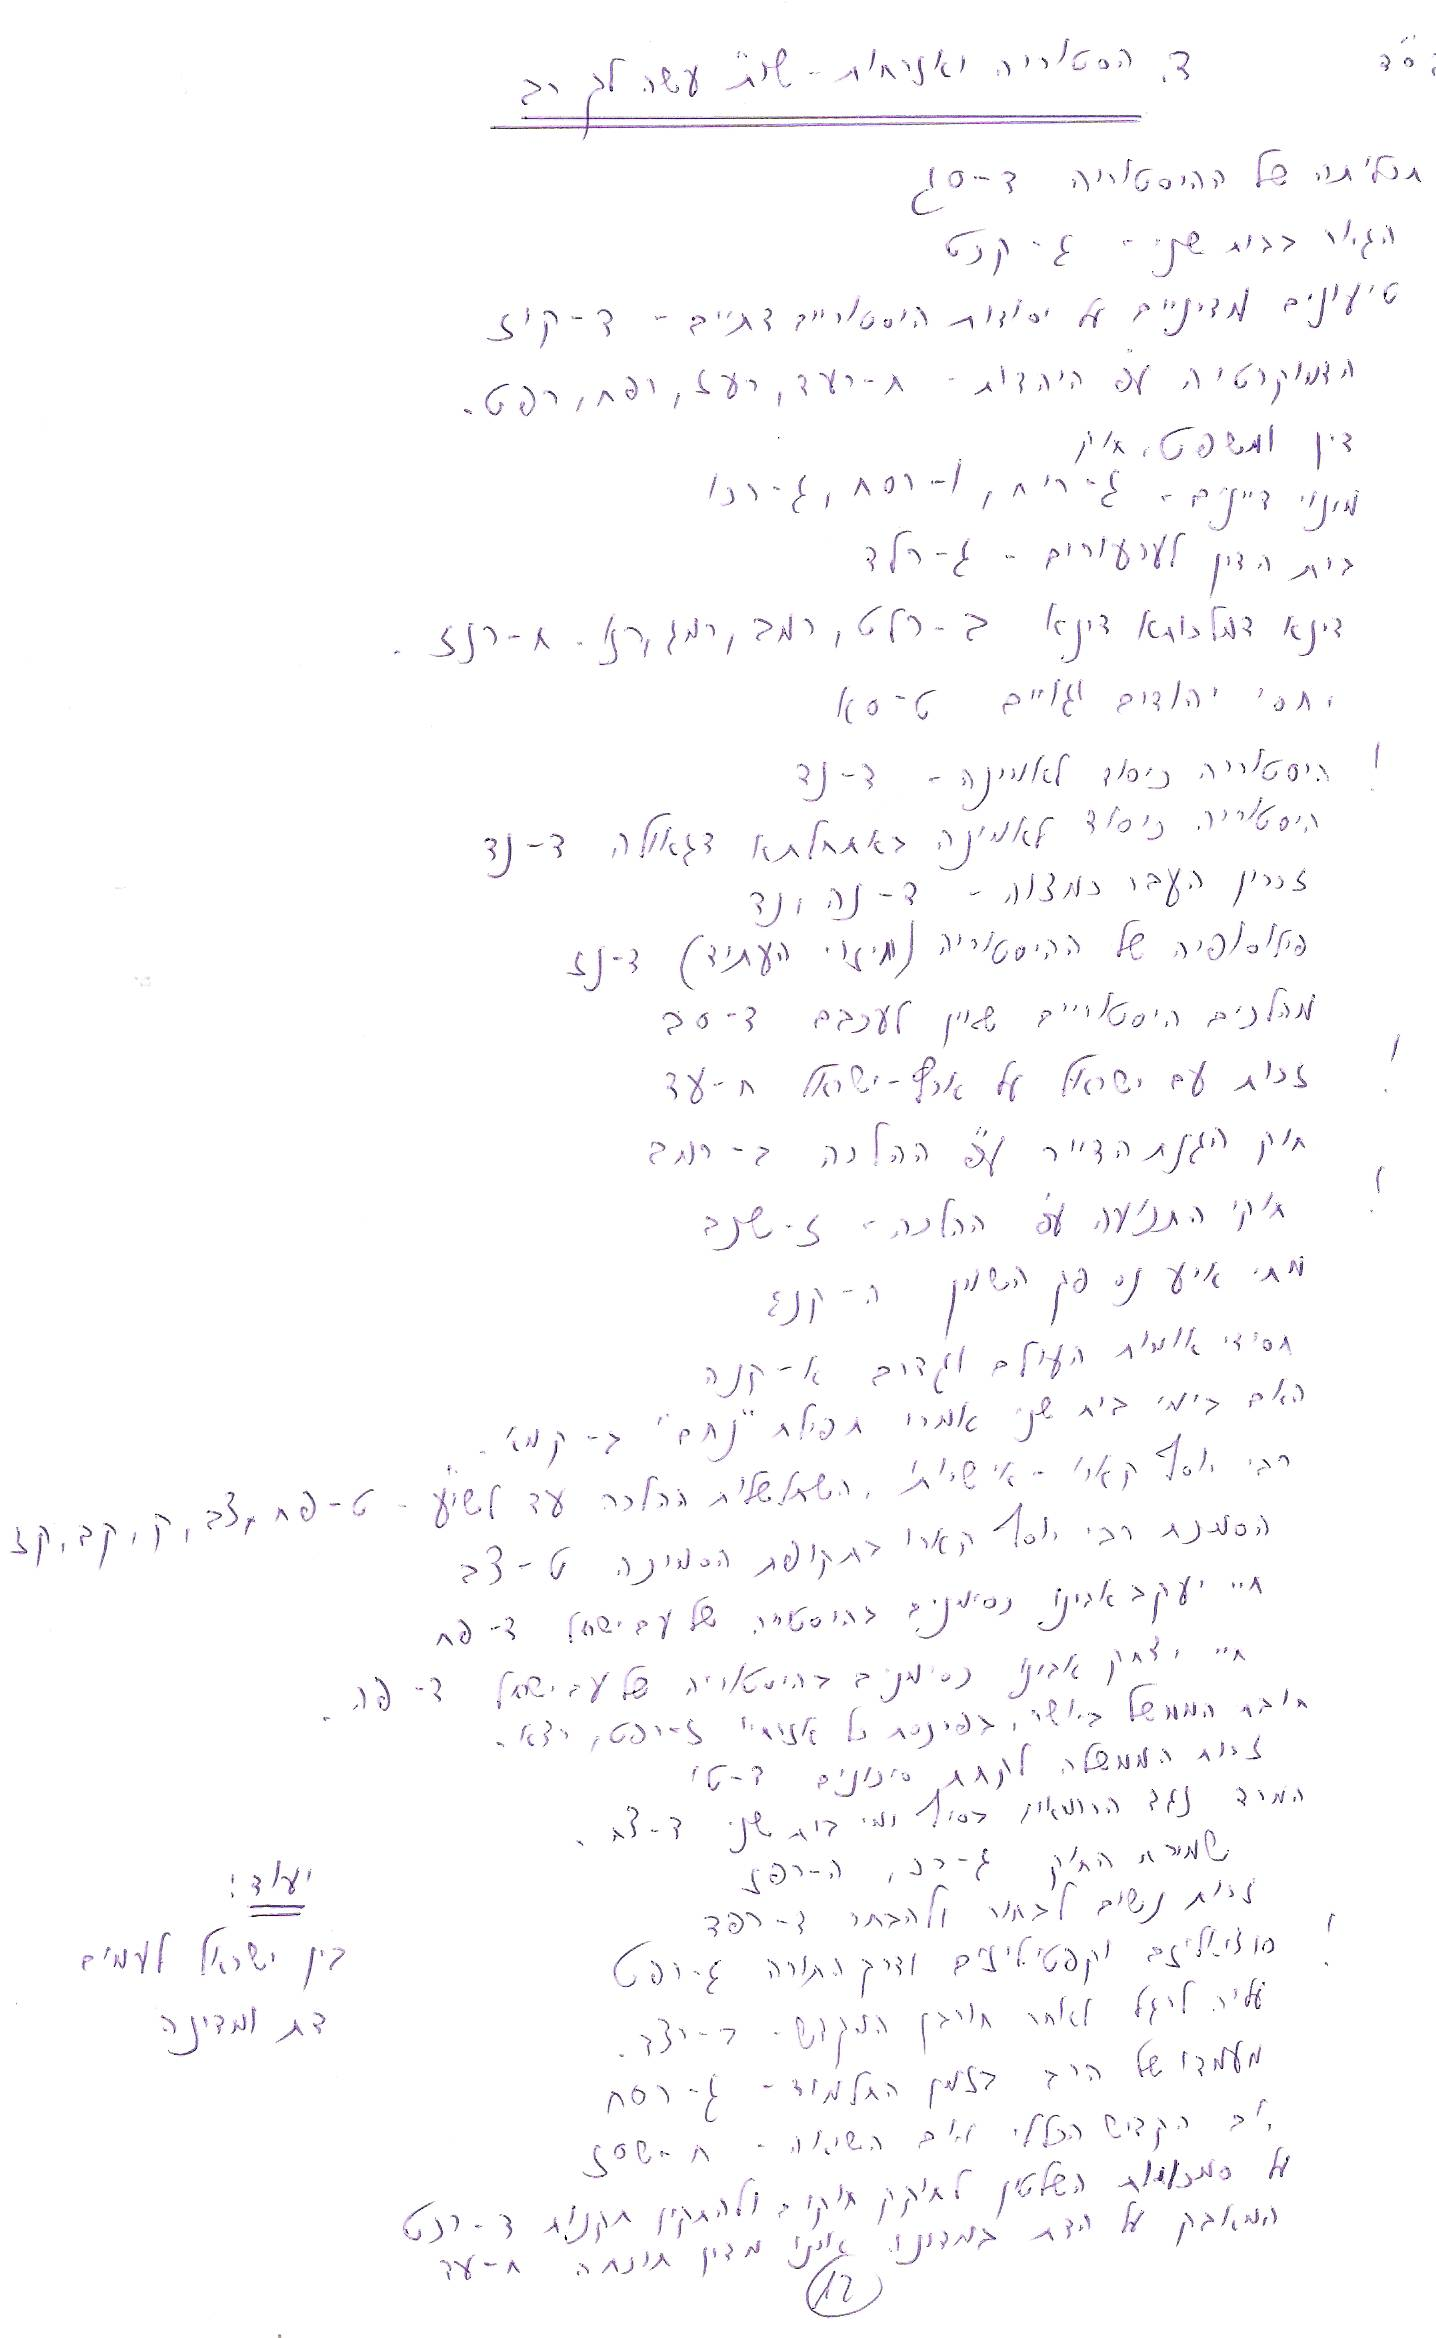 בס"ד
ד. הסטוריה ואזרחות - שו"ת עשה לך רב
תכליתה של ההיסטוריה ד-סג
הגיור בבית שני - ג-קכט
טיעונים מדיניים על יסודות היסטוריים דתיים - ד-קיז
הדמוקרטיה עפ היהדות - ח-רעד, רעז, רפח, רפט.
דין ומשפט, חוק
מינוי דיינים - ג-ריח, ו-רסח, ג-רכו
בית הדין לערעורים - ג-רלד
דינא דמלכותא דינא ב-רלט, רמב, רמג, רנו. ח-רנז.
יחסי יהודים וגויים ט-סא
! היסטוריה כיסוד לאמונה - ד-נד
היסטוריה כיסוד לאמונה באתחלתא דגאולה ד-נד
זכרון העבר כמצוה - ד-נה, נד
פילוסופיה של ההיסטוריה (וחיזוי העתיד) ד-נז
מהלכים היסטוריים שאין לעכבם ד-סב
! זכות עם ישראל על ארץ-ישראל ח-עד
חוק הגנת הדייר עפ"י ההלכה ב-רמב
! חוקי התנועה עפ ההלכה - ז-שנב
מתי אירע נס פך השמן ה-קנג
חסידי אומות העולם וגדרם א-קנה
האם בימי בית שני אמרו תפילת "נחם" ב-קמא.
רבי יוסף קארו - אישיותו, השתלשלות ההלכה עד לשו"ע - ט-פח, צב, ק, קב, קז
הסמכת רבי יוסף קארו בתקופת הסמיכה ט-צב
חיי יעקב אבינו כסימנים בהיסטוריה של עם ישראל ד-פח
חיי יצחק אבינו כסימנים בהיסטוריה של עם ישראל ד-פה.
חובת הממשל ביושר, בפרנסת כל אזרחיו ז-רפט, רצא.
זכות הממשלה לקחת סיכונים ד-טו
המרד נגד הרומאים בסוף ימי בית שני ד-צח.
שמירת החוק ג-רכ, ה-רפז
זכות נשים לבחור ולהבחר ד-רפד
! סוציאליזם וקפטיליזם ודרך התורה ג-רפט
עליה לרגל לאחר חורבן המקדש - ב-רצב.
מעמדו של הרב בזמן התלמוד - ג-רסח
יום הקדיש הכללי ויום השואה - ח-שסז
על סמכויות השלטון לחוקק חוקים ולהתקין תקנות ד-רכט
המאבק על הדת במדינה איננו מדין תוכחה ח-עד
יעוד:
בין ישראל לעמים
דת ומדינה
12